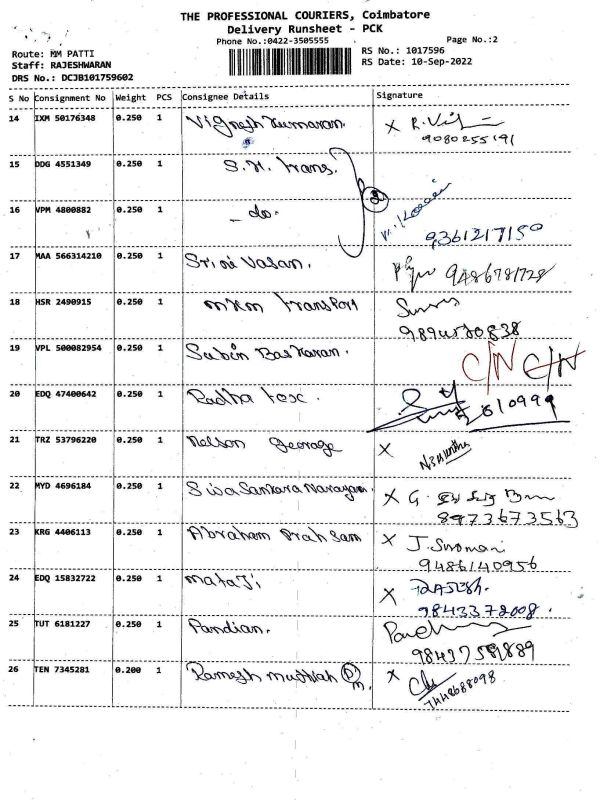 THE PROFESSIONAL COURIERS, Coimbatore
Delivery Runsheet - PCK
Phone No.:0422-3505555
Page No.:2
Route: MM PATTI
RS No.: 1017596
Staff: RAJESHWARAN
RS Date: 10-Sep-2022
DRS No.: DCJB101759602
S No Consignment No Weight PCS Consignee Details Signature
14 IXM 50176348 0.250 1 Vignesh Kumaran. X R.
9080255191
15 DDG 4551349 0.250 1 S.H. Trans.
16 VPM 4800882 0.250 1 - do. 2
9361217150
17 MAA 566314210 0.250 1 Srini Vasan. 9486781728
18 HSR 2490915 0.250 1 MKM Transport
9894520838
19 VPL 500082954 0.250 1 Sabin Baskaran. C/N C/N
20 EDQ 47400642 0.250 1 Radha tex.
21 TRZ 53796220 0.250 1 Nelson George X
22 MYD 4696184 0.250 1 Siva Sankara Narayan. X G.
8973673563
23 KRG 4406113 0.250 1 Abraham Prah Sam X J.
9486140956
24 EDQ 15832722 0.250 1 mataji X
9843372008.
25 TUT 6181227 0.250 1 Pandian.
26 TEN 7345281 0.200 1 Ramesh muthiah X
7448688098